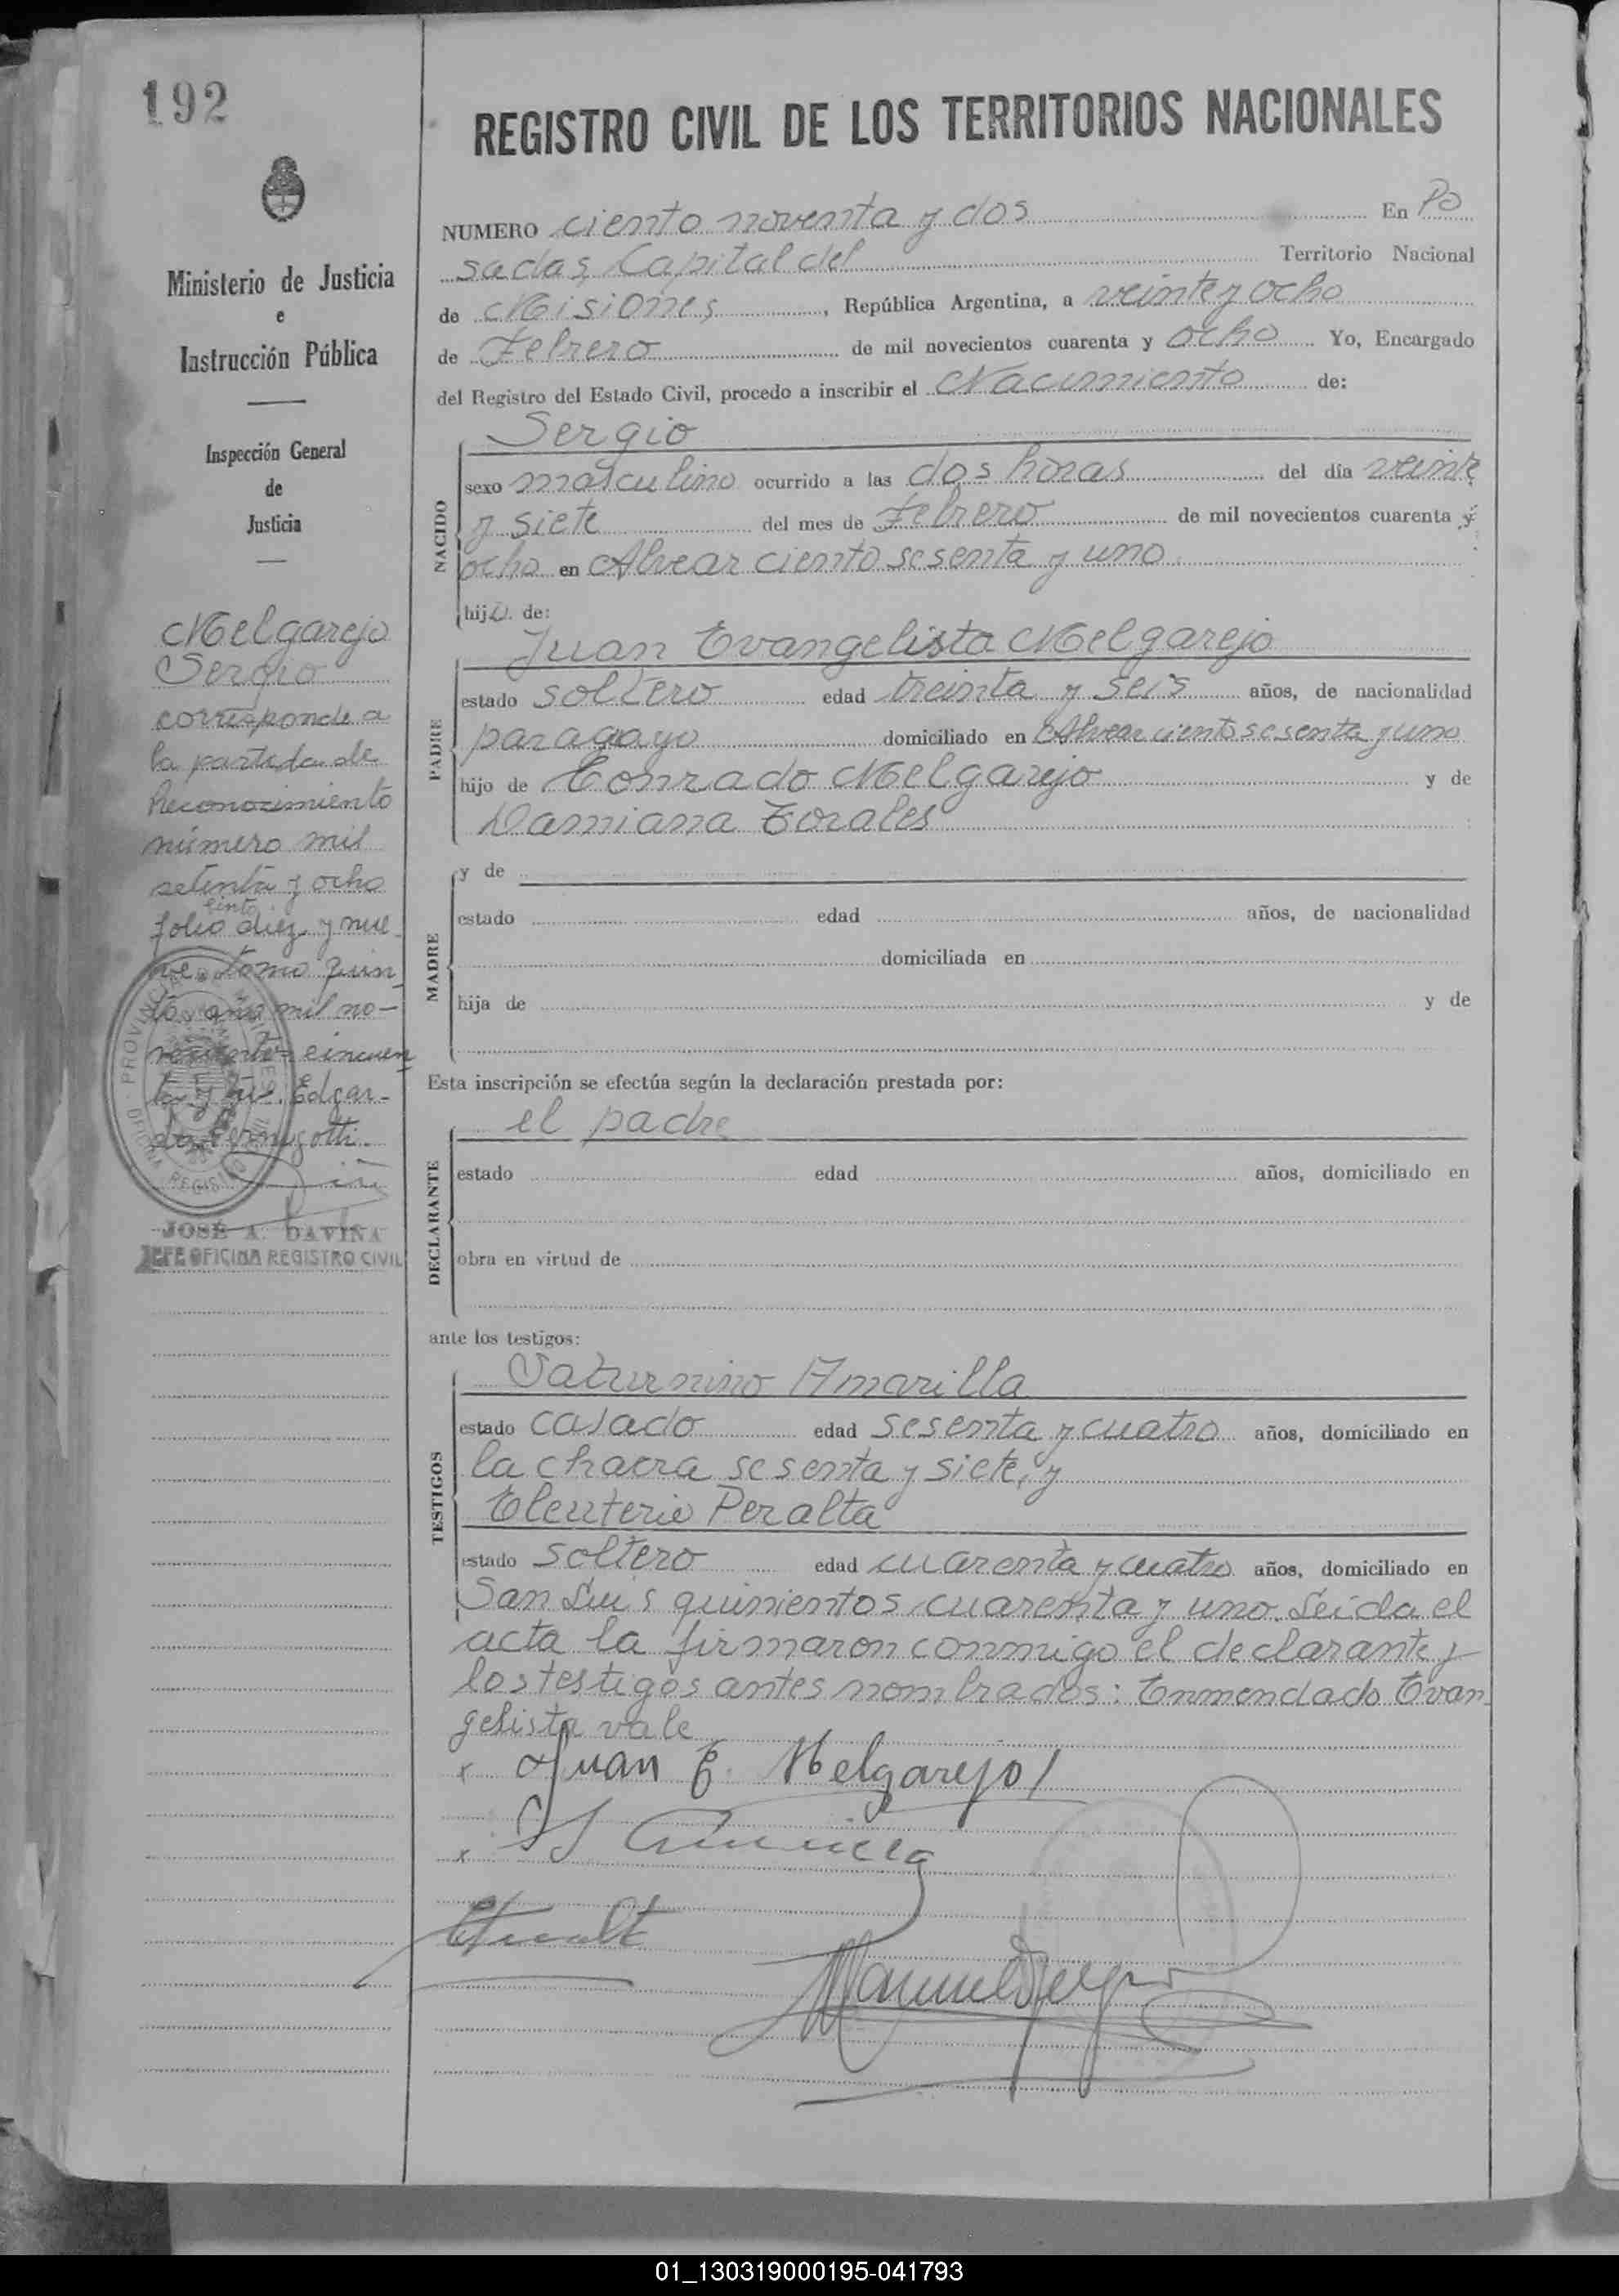 192
Ministerio de Justicia
e
Instrucción Pública
Inspección General
de
Justicia
Melgarejo
Sergio
corresponde a
la partida de
Reconocimiento
número mil
setenta y ocho
ciento
folio diez y nue
ve tomo quin
to año mil no-
vecientos cincuen
ta y tres. Edgar-
do
PROVINCIA DE MISIONES
JOSÉ A. DAVIÑA
JEFE OFICINA REGISTRO CIVIL
REGISTRO CIVIL DE LOS TERRITORIOS NACIONALES
NUMERO ciento noventa y dos En Po
sadas, Capital del Territorio Nacional
de Misiones, República Argentina, a veinte y ocho
de Febrero de mil novecientos cuarenta y ocho Yo, Encargado
del Registro del Estado Civil, procedo a inscribir el Nacimiento de:
NACIDO
Sergio
sexo masculino ocurrido a las dos horas del día veinte
y siete del mes de Febrero de mil novecientos cuarenta y
ocho en Alvear ciento sesenta y uno.
hijo de:
PADRE
Juan Evangelista Melgarejo
estado soltero edad treinta y seis años, de nacionalidad
paragayo domiciliado en Alvear ciento sesenta y uno
hijo de Conrado Melgarejo y de
Damiana Torales
MADRE
y de
estado edad años, de nacionalidad
domiciliada en
hija de y de
Esta inscripción se efectúa según la declaración prestada por:
DECLARANTE
el padre
estado edad años, domiciliado en
obra en virtud de
ante los testigos:
TESTIGOS
Saturnino Amarilla
estado casado edad sesenta y cuatro años, domiciliado en
la chacra sesenta y siete, y
Eleuterio Peralta
estado soltero edad cuarenta y cuatro años, domiciliado en
San Luis quinientos cuarenta y uno. Leida el
acta la firmaron conmigo el declarante y
los testigos antes nombrados: Enmendado Evan
gelista vale
x Juan E. Melgarejo
x
01_130319000195-041793